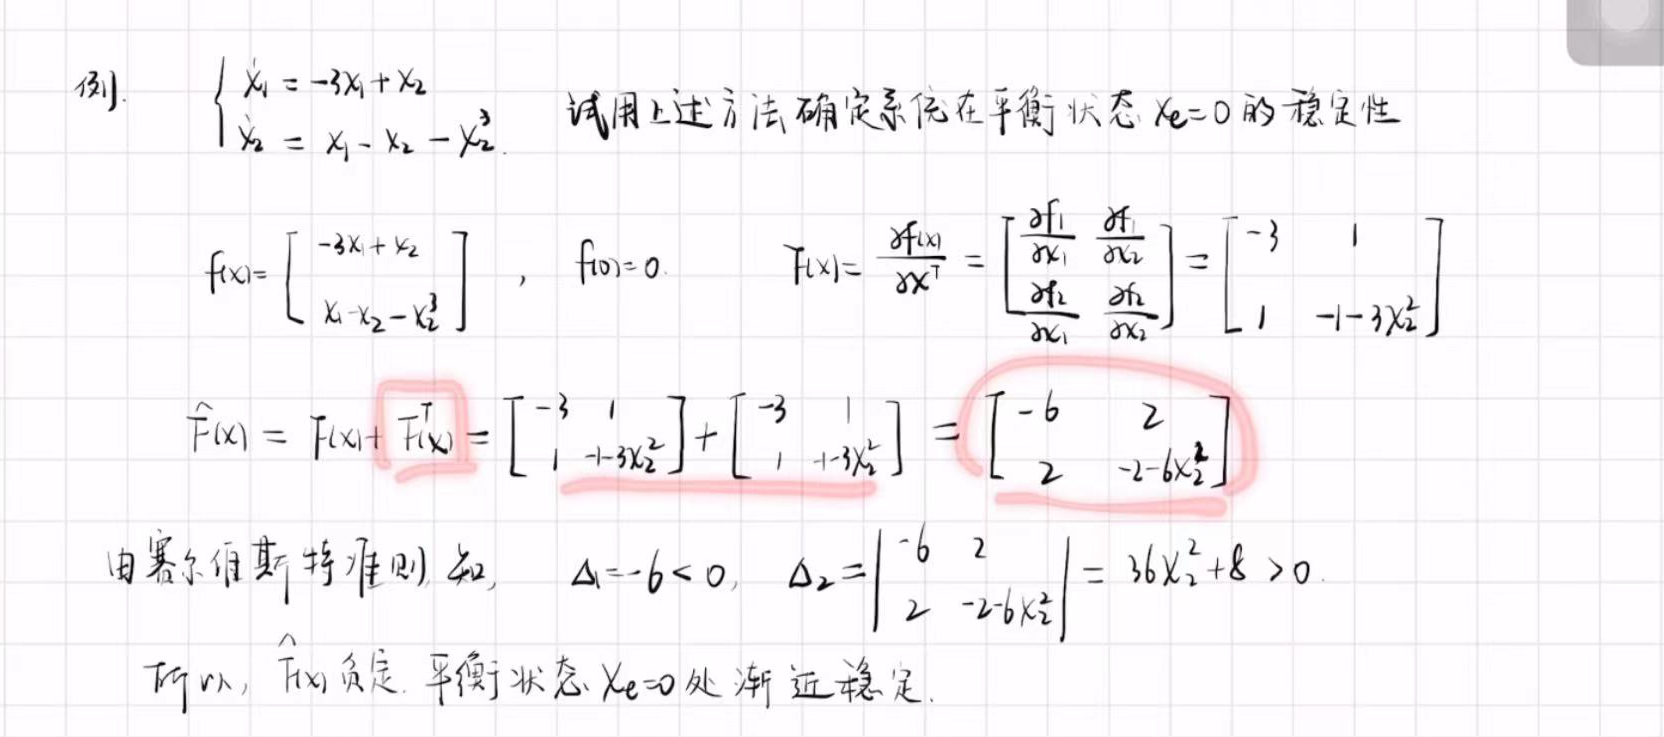 例. { ẋ₁ = -3x₁ + x₂
ẋ₂ = x₁ - x₂ - x₂³. 试用上述方法确定系统在平衡状态 xe=0 的稳定性
f(x)= [ -3x₁+x₂ ; x₁-x₂-x₂³ ] , f(0)=0. F(x)= ∂f(x)/∂xᵀ = [ ∂f₁/∂x₁ ∂f₁/∂x₂ ; ∂f₂/∂x₁ ∂f₂/∂x₂ ] = [ -3 1 ; 1 -1-3x₂² ]
F̂(x) = F(x)+ Fᵀ(x) = [ -3 1 ; 1 -1-3x₂² ] + [ -3 1 ; 1 -1-3x₂² ] = [ -6 2 ; 2 -2-6x₂² ]
由赛尔维斯特准则知, Δ₁=-6<0, Δ₂= | -6 2 ; 2 -2-6x₂² | = 36x₂²+8 >0.
所以, F̂(x) 负定. 平衡状态 xe=0 处渐近稳定.